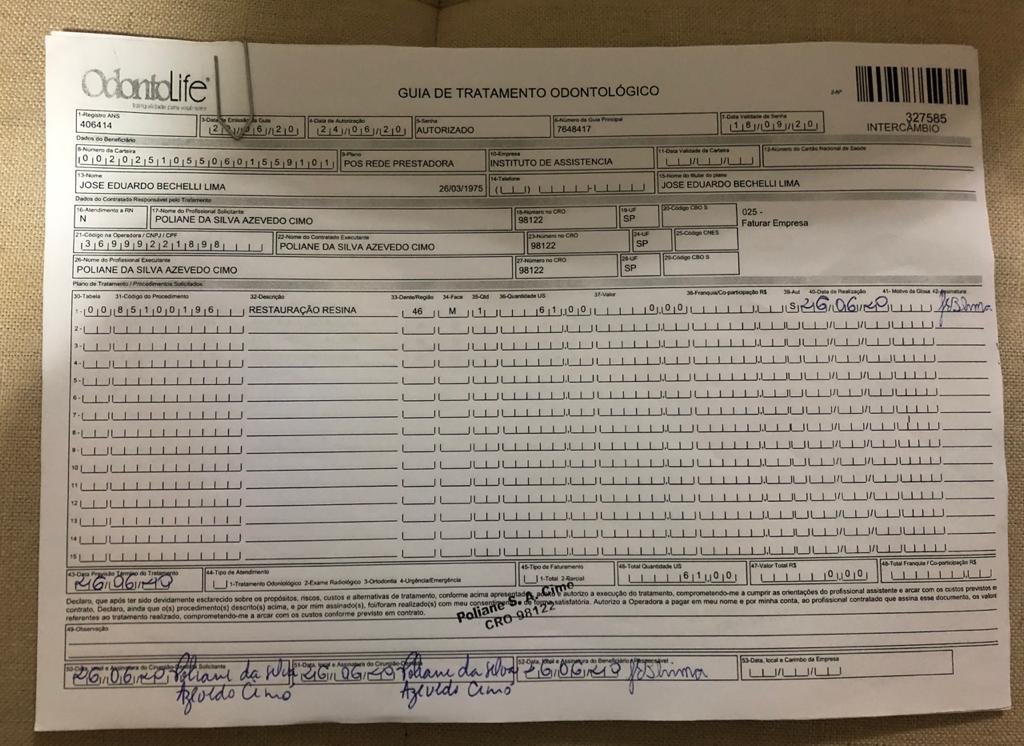 OdontoLife®
tranquilidade para você sorrir
GUIA DE TRATAMENTO ODONTOLÓGICO
2-Nº
327585
INTERCÂMBIO
1-Registro ANS 3-Data de Emissão da Guia 4-Data de Autorização 5-Senha 6-Número da Guia Principal 7-Data Validade da Senha
406414 24/06/20 AUTORIZADO 7648417 18/09/20
Dados do Beneficiário
8-Número da Carteira 9-Plano 10-Empresa 11-Data Validade da Carteira 12-Número do Cartão Nacional de Saúde
00202510550601559101 POS REDE PRESTADORA INSTITUTO DE ASSISTENCIA
13-Nome 14-Telefone 15-Nome do titular do plano
JOSE EDUARDO BECHELLI LIMA 26/03/1975 JOSE EDUARDO BECHELLI LIMA
Dados do Contratado Responsável pelo Tratamento
16-Atendimento a RN 17-Nome do Profissional Solicitante 18-Número no CRO 19-UF 20-Código CBO S 025 -
N POLIANE DA SILVA AZEVEDO CIMO 98122 SP Faturar Empresa
21-Código na Operadora / CNPJ / CPF 22-Nome do Contratado Executante 23-Número no CRO 24-UF 25-Código CNES
36999221898 POLIANE DA SILVA AZEVEDO CIMO 98122 SP
26-Nome do Profissional Executante 27-Número no CRO 28-UF 29-Código CBO S
POLIANE DA SILVA AZEVEDO CIMO 98122 SP
Plano de Tratamento / Procedimentos Solicitados
30-Tabela 31-Código do Procedimento 32-Descrição 33-Dente/Região 34-Face 35-Qtd 36-Quantidade US 37-Valor 38-Franquia/Co-participação R$ 39-Aut 40-Data de Realização 41- Motivo da Glosa 42-Assinatura
1- 00 85100196 RESTAURAÇÃO RESINA 46 M 1 61,00 0,00 S 26/06/20
2-
3-
4-
5-
6-
7-
8-
9-
10
11
12
13
14
15
43-Data Previsão Término do Tratamento 44-Tipo de Atendimento 45-Tipo de Faturamento 46-Total Quantidade US 47-Valor Total R$ 48-Total Franquia / Co-participação R$
26/06/20 1-Tratamento Odontológico 2-Exame Radiológico 3-Ortodontia 4-Urgência/Emergência 1-Total 2-Parcial 61,00 0,00
Declaro, que após ter sido devidamente esclarecido sobre os propósitos, riscos, custos e alternativas de tratamento, conforme acima apresentados, aceito e autorizo a execução do tratamento, comprometendo-me a cumprir as orientações do profissional assistente e arcar com os custos previstos em
contrato. Declaro, ainda que o(s) procedimento(s) descrito(s) acima, e por mim assinado(s), foi/foram realizado(s) com meu consentimento e de forma satisfatória. Autorizo a Operadora a pagar em meu nome e por minha conta, ao profissional contratado que assina esse documento, os valores
referentes ao tratamento realizado, comprometendo-me a arcar com os custos conforme previsto em contrato.
Poliane S. A. Cimo
CRO 98122
49-Observação
50-Data, local e Assinatura do Cirurgião-Dentista Solicitante 51-Data, local e Assinatura do Cirurgião-Dentista 52-Data, local e Assinatura do Beneficiário / Responsável 53-Data, local e Carimbo da Empresa
26/06/20 Poliane da Silva 26/06/20 Poliane da Silva 26/06/20
Azevedo Cimo Azevedo Cimo